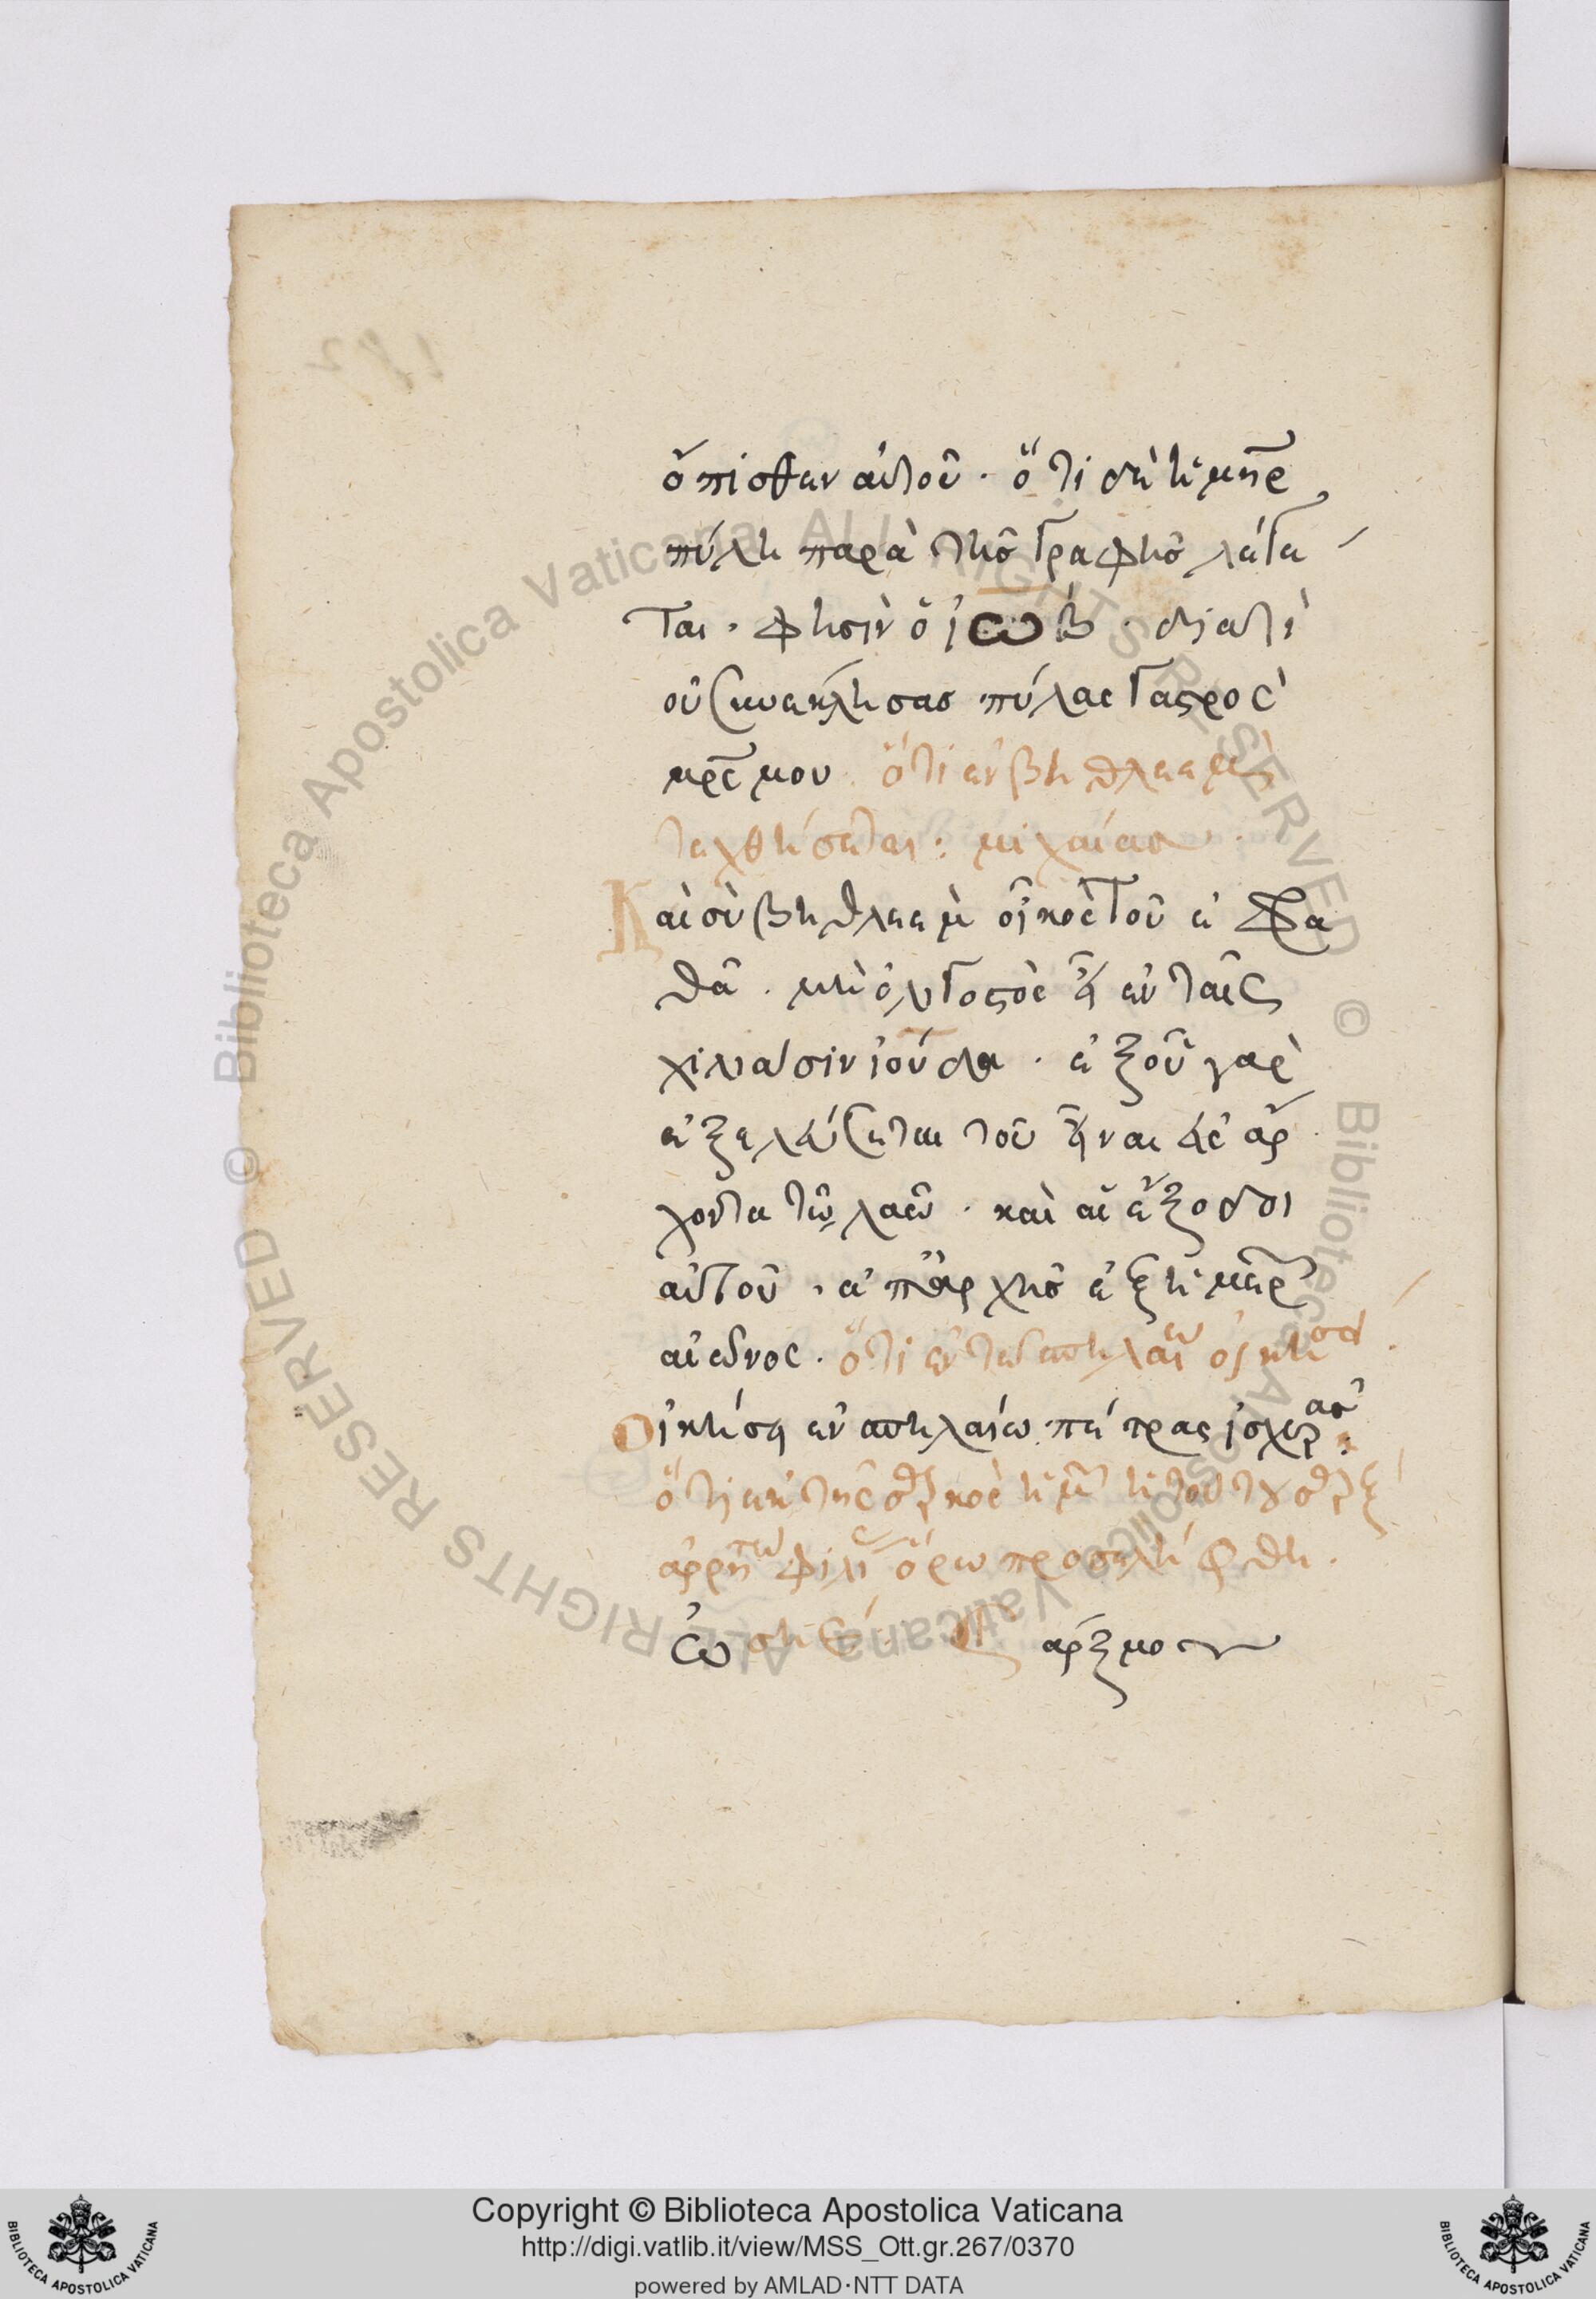 ὄπισθεν αὐτοῦ · ὅτι δὲ ἡ μηρ
πύλη παρὰ τῆς γραφῆς λέγε
ται · φησὶν ὁ ἰὼβ · διατὶ
οὐ συνεκλήσας πύλας γαστρὸς
μρς μου · ὅτι ἐν βηθλεὲμ
τεχθήσεται : μιχαίας
Καὶ σὺ βηθλεὲμ οἶκος τοῦ ἐφρα
θᾶ · μὴ ὀλιγοστὸς εἶ ἐν ταῖς
χιλιάσιν ἰούδα · ἐξ οὗ γὰρ
ἐξελεύσεται τοῦ εἶναι εἰς ἄρ
χοντα τῶ λαῶ · καὶ αἱ ἔξοδοι
αὐτοῦ · ἀπ' ἀρχῆς ἐξ ἡμερ
αἰῶνος · ὅτι ἐν τῶ σπηλαίω οἰκήσει
Οἰκήσει ἐν σπηλαίω πέτρας ἰσχυρᾶς :
ὅτι ἐκ τῆς
προσελήφθη ·
Ὠσηέ · αρξμον
Copyright © Biblioteca Apostolica Vaticana
http://digi.vatlib.it/view/MSS_Ott.gr.267/0370
powered by AMLAD·NTT DATA
BIBLIOTECA APOSTOLICA VATICANA
BIBLIOTECA APOSTOLICA VATICANA
© Biblioteca Apostolica Vaticana ALL RIGHTS RESERVED © Biblioteca Apostolica Vaticana ALL RIGHTS RESERVED